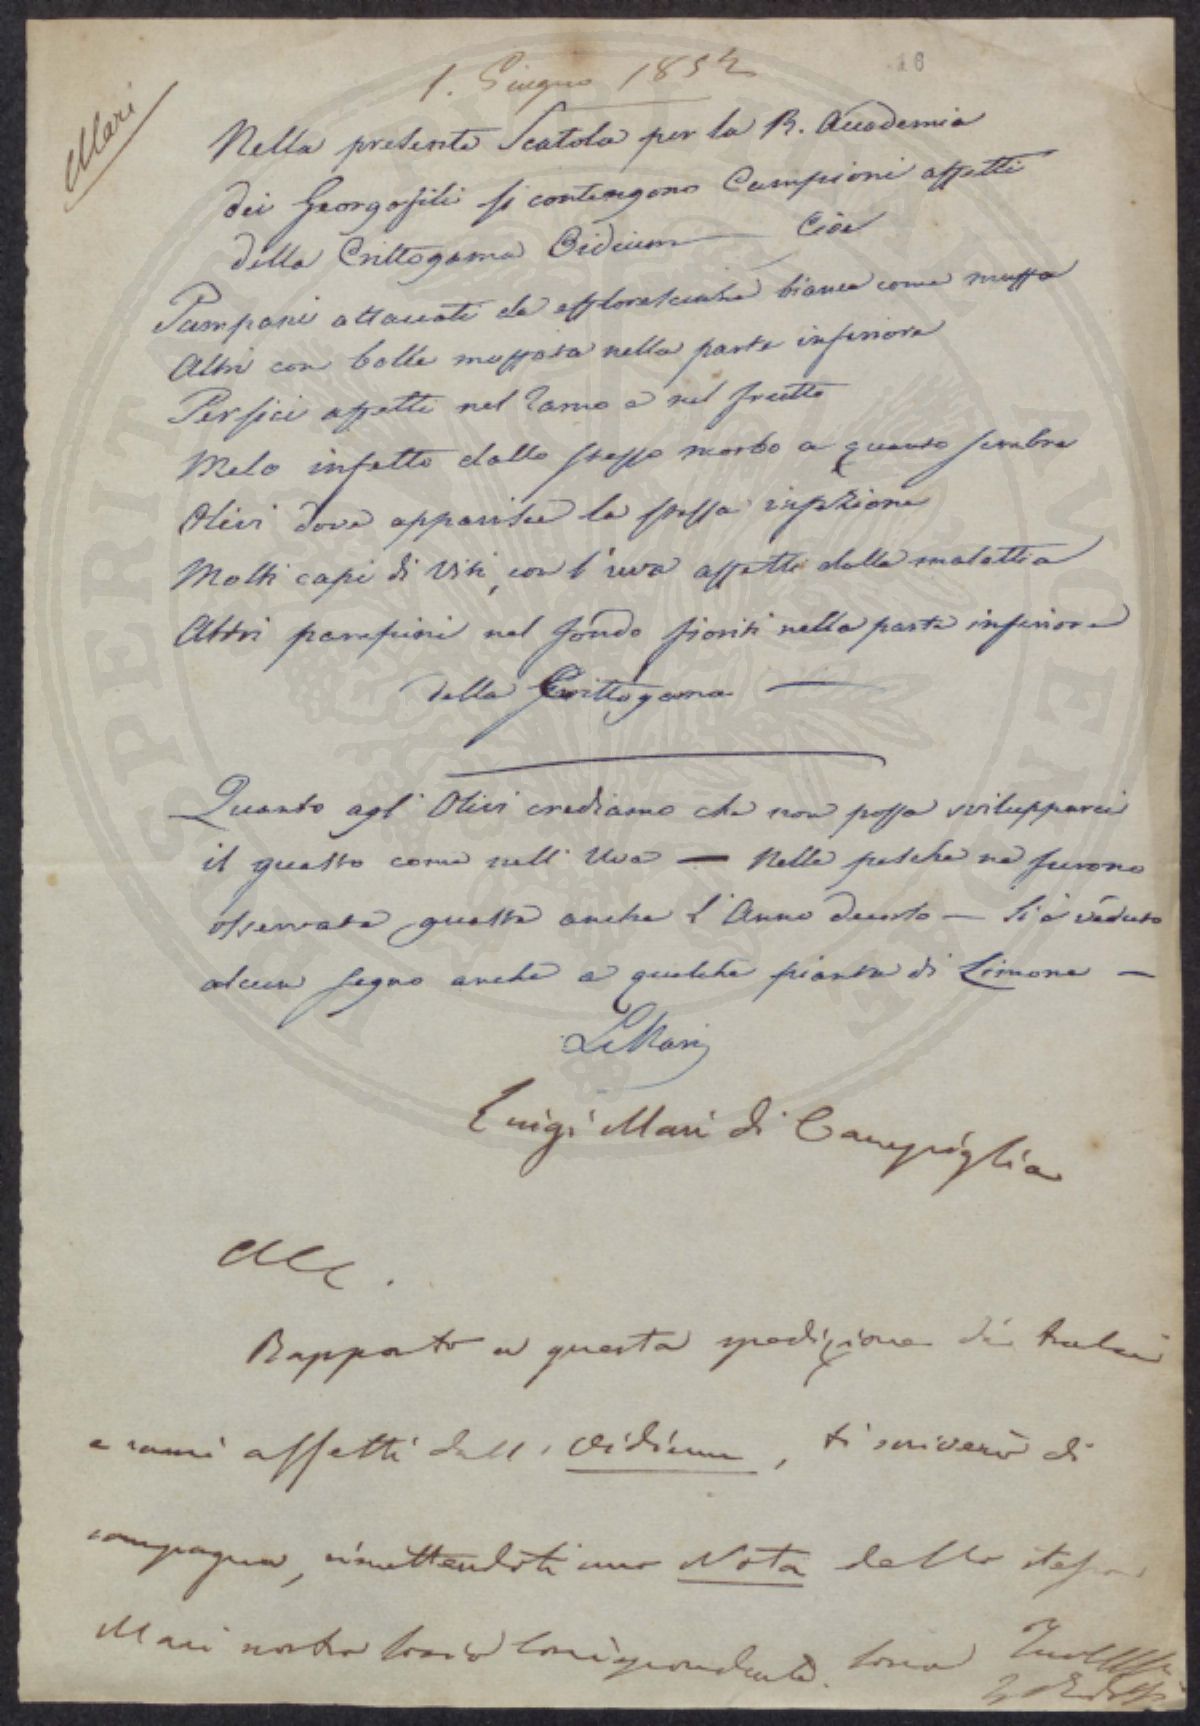 16
1. Giugno 1852
Mari
Nella presente Scatola per la R. Accademia
dei Georgofili si contengono Campioni affetti
della Crittogama Oidium Cioè
Pampani attaccati da efflorescenza bianca come muffa
Altri con bolle muffata nella parte inferiore
Persici affetti nel ramo e nel frutto
Melo infetto dallo stesso morbo a quanto sembra
Olivi dove apparisce la stessa infezione
Molti capi di Viti, con l'uva affetti dalla malattia
Altri parassini nel fondo fioriti nella parte inferiore
della Crittogama
Quanto agl'Olivi crediamo che non possa svilupparci
il guasto come nell'Uva — Nelle pesche ne furono
osservate guaste anche l'Anno decorso — Si è veduto
alcun segno anche a qualche pianta di Limone —
L. Mari
Luigi Mari di Campiglia
Rapporto a questa spedizione di tralci
e rami affetti dall'oidium, ti scriverò di
campagna, rimettendoti una Nota dello stesso
Mari nostro Socio Corrispondente.
PROSPERITATI PUBLICAE AUGENDAE